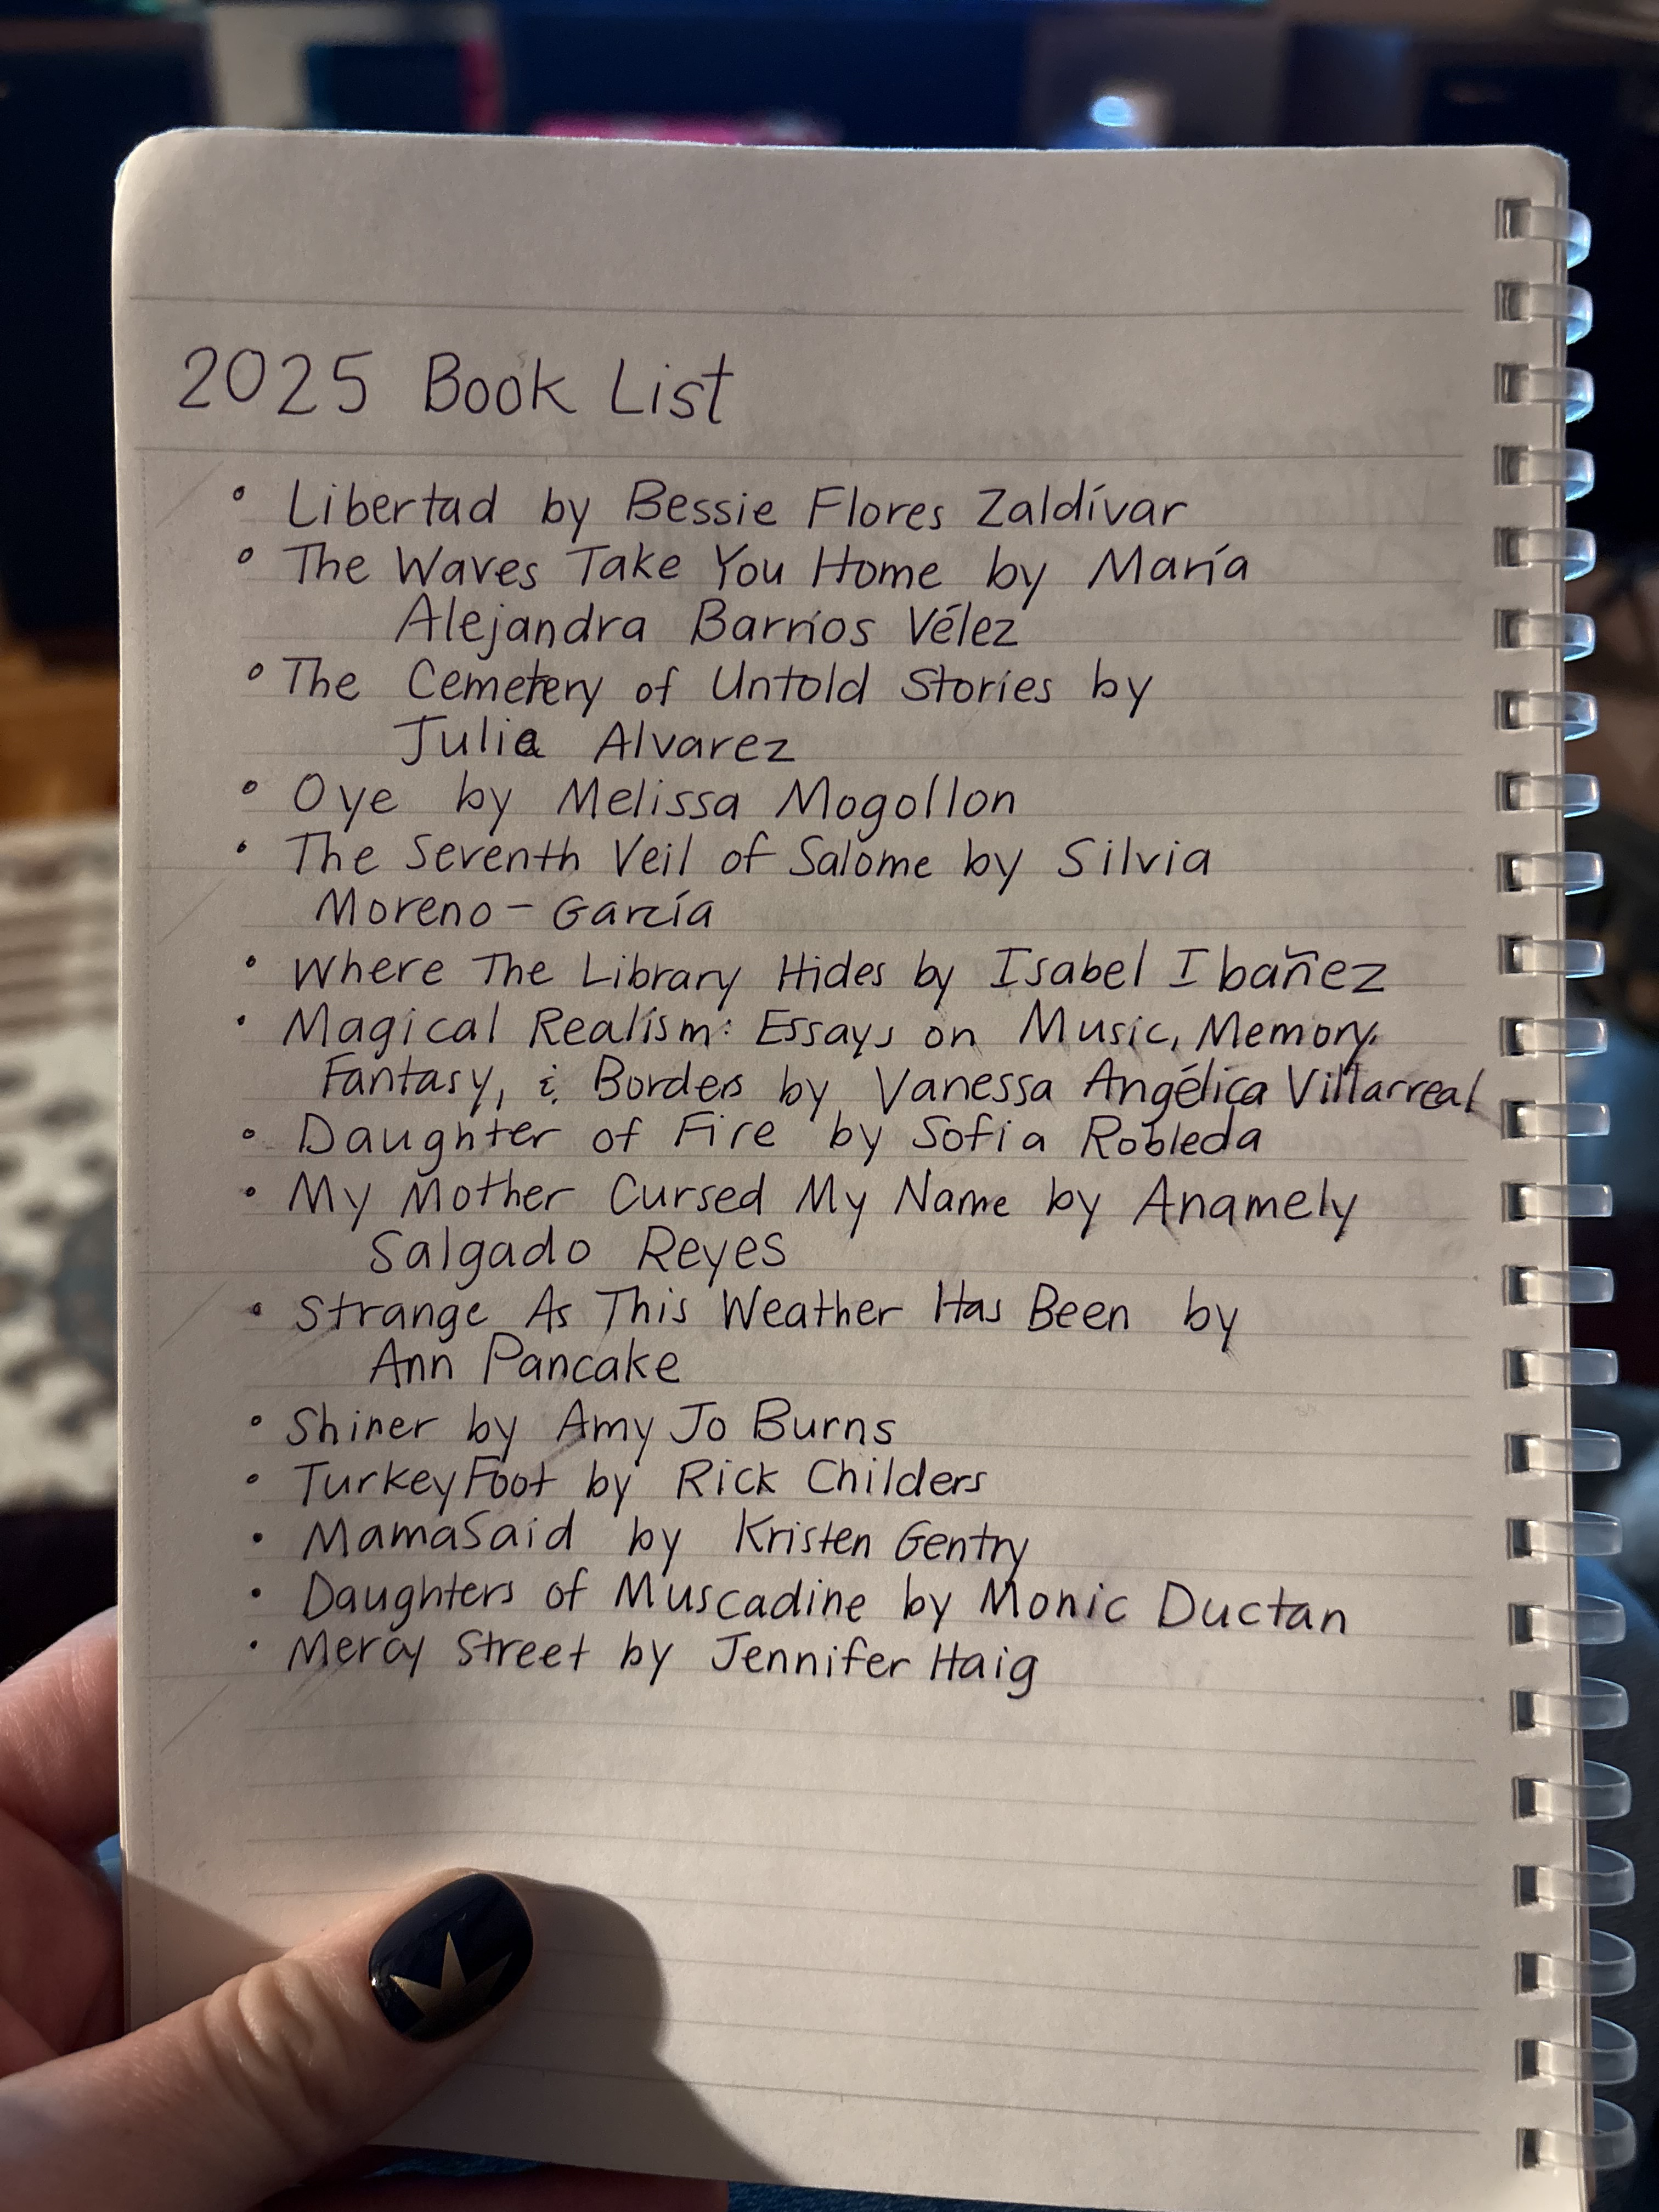 2025 Book List
• Libertad by Bessie Flores Zaldívar
• The Waves Take You Home by María
Alejandra Barrios Vélez
• The Cemetery of Untold Stories by
Julia Alvarez
• Oye by Melissa Mogollon
• The Seventh Veil of Salome by Silvia
Moreno-García
• Where The Library Hides by Isabel Ibañez
• Magical Realism: Essays on Music, Memory,
Fantasy, & Borders by Vanessa Angélica Villarreal
• Daughter of Fire by Sofia Robleda
• My Mother Cursed My Name by Anamely
Salgado Reyes
• Strange As This Weather Has Been by
Ann Pancake
• Shiner by Amy Jo Burns
• TurkeyFoot by Rick Childers
• MamaSaid by Kristen Gentry
• Daughters of Muscadine by Monic Ductan
• Mercy Street by Jennifer Haig